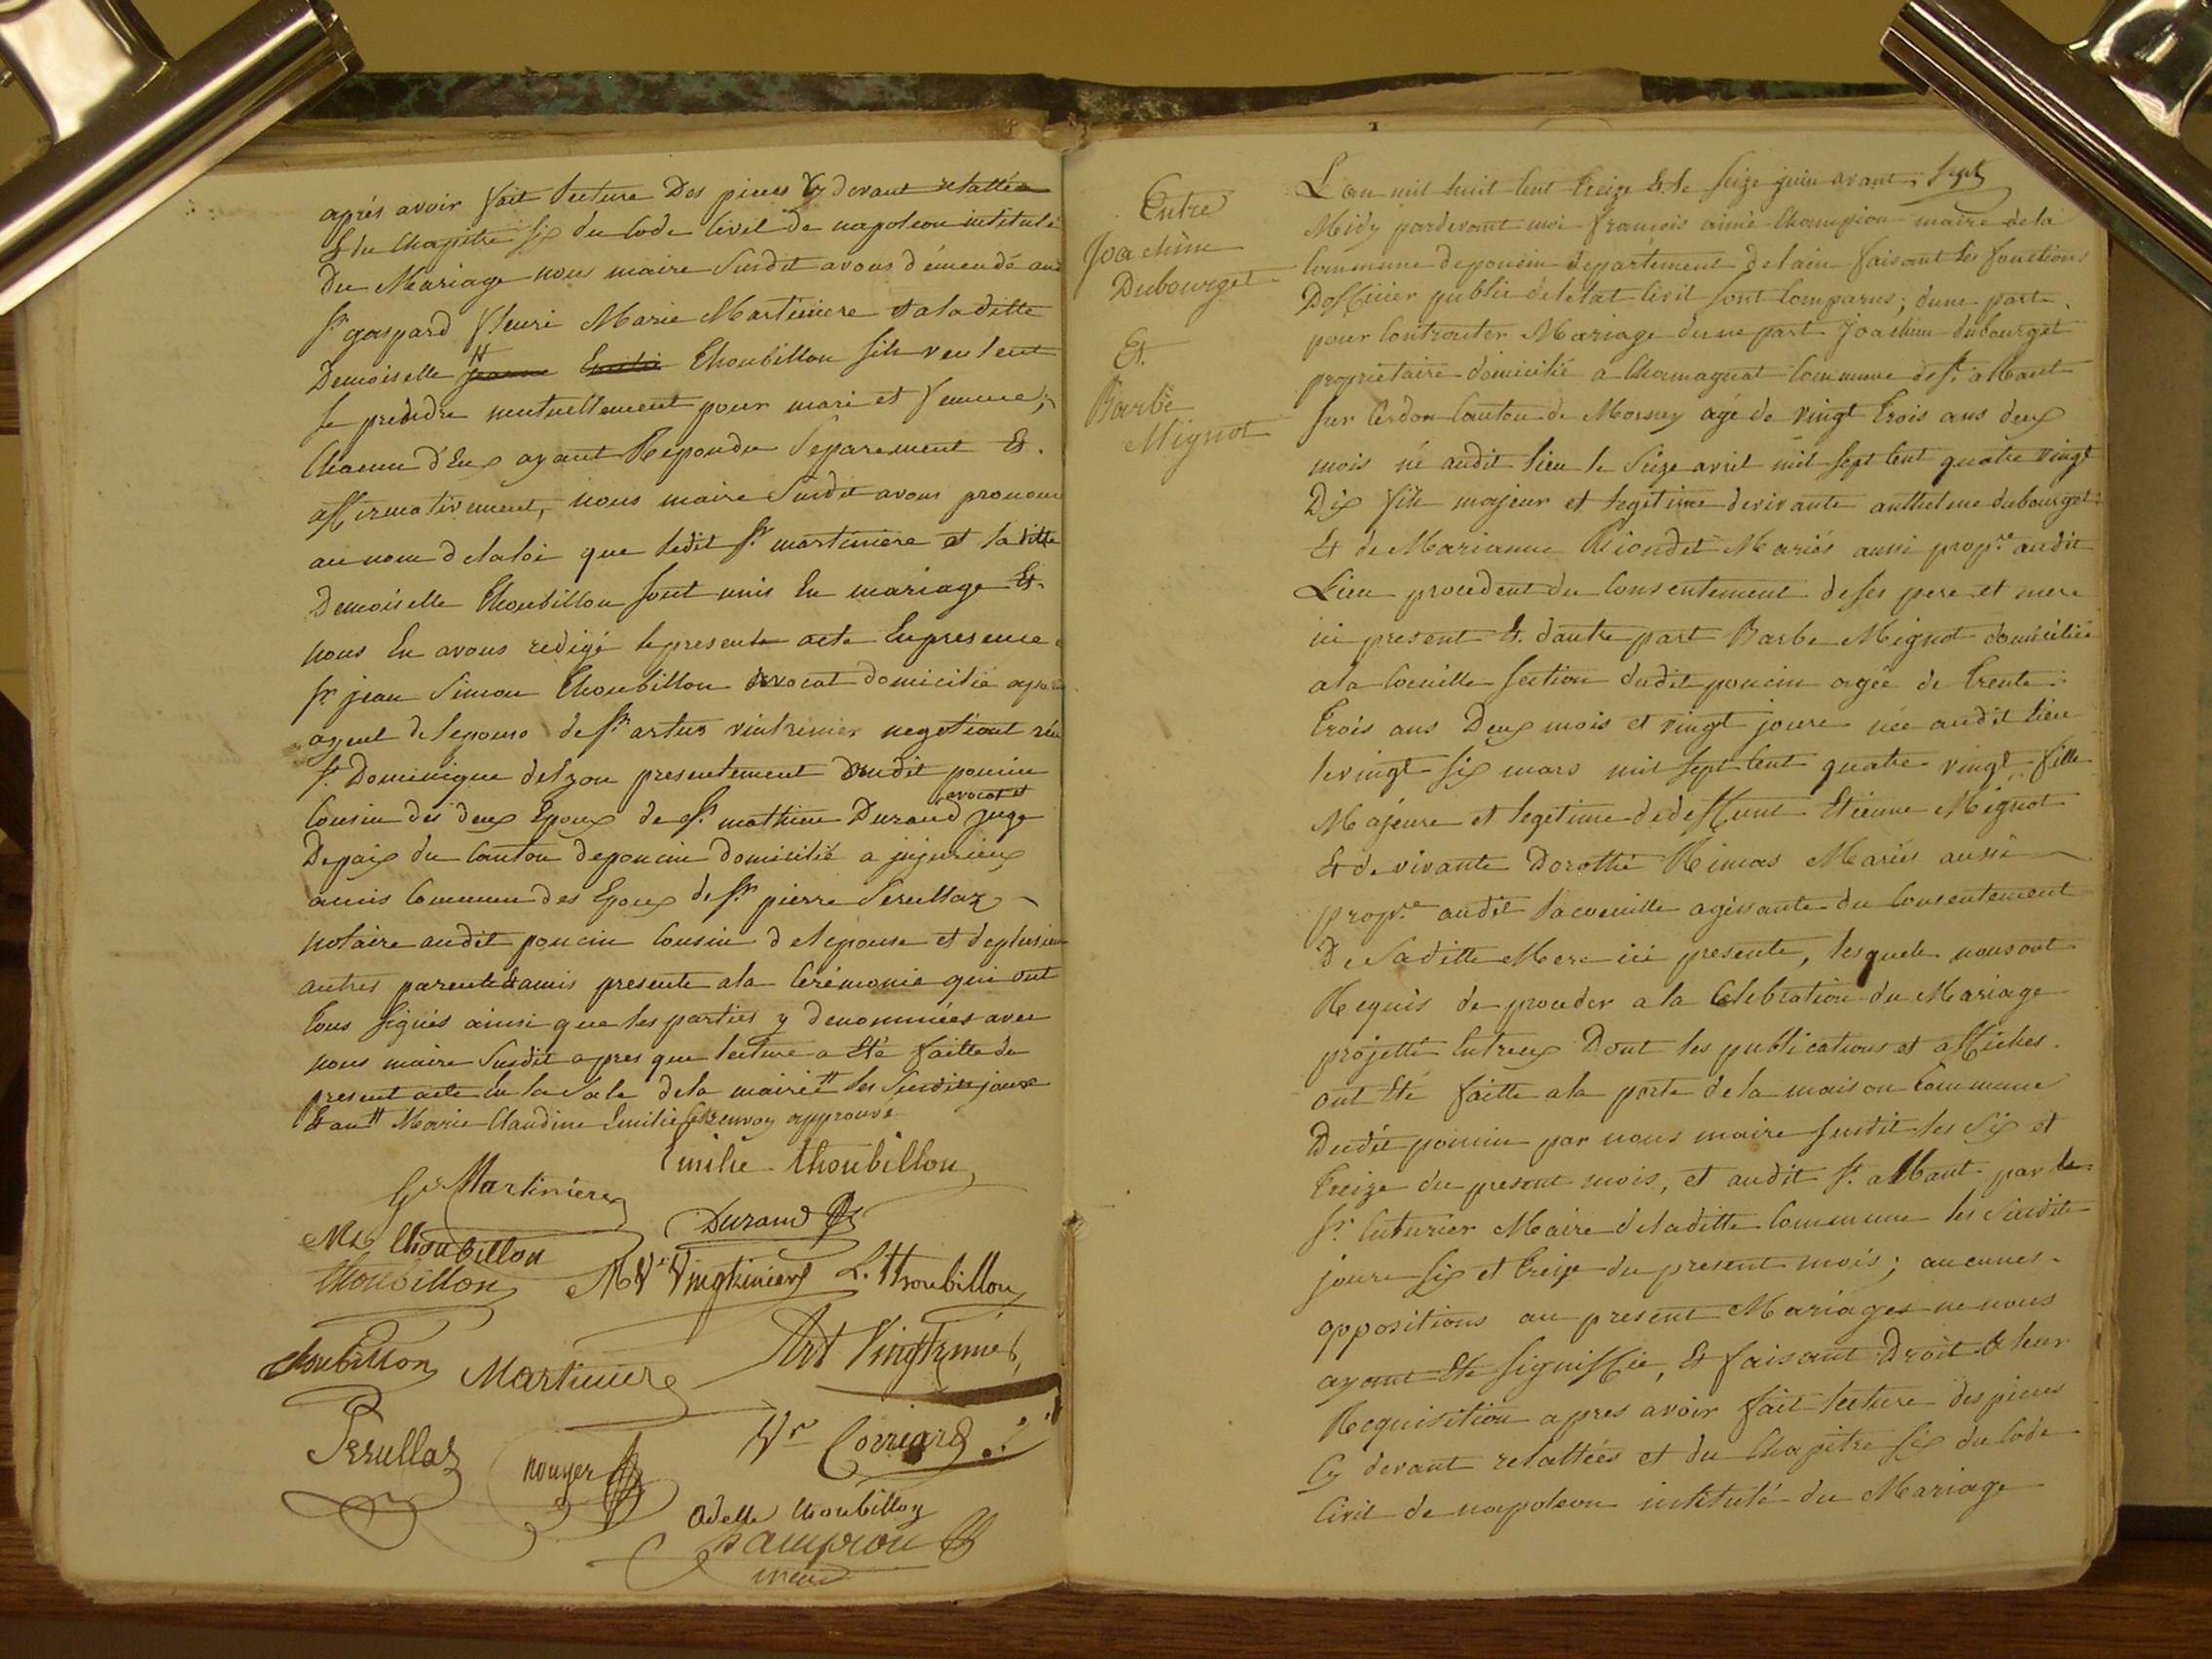 après avoir fait lecture Des pieces Cy devant relattées
Et du Chapitre six du Code Civil de napoleon intitulé
Du Mariage nous maire Susdit avons démendé aud
Sr gaspard fleuri Marie Martiniere & a laditte
Demoiselle Jeanne Emilie Choubillon sils veulent
se prendre mutuellement pour mari et femme;
Chacun d'Eux ayant Repondu Separement Et
affirmativement, nous maire Susdit avons prononcé
au nom de la loi que ledit Sr martiniere et la ditte
Demoiselle Thoubillon sont unis En mariage Et
nous En avons redigé le present acte En presence
Sr jean Simon Thoubillon avocat domicilié
ayeul de lepouse de Sr artus vintrinier negotiant
St Dominique delzon presentement Dudit poncin
Cousin des deux Epoux de Sr mathieu Durand avocat et juge
De paix du Canton de poncin domicilié a jujurieux
amis Commun des Epoux de Sr pierre Perullaz
notaire audit poncin Cousin de lepouse et de plusieu
autres parents & amis presents a la Cerémonie qui ont
Tous signés ainsi que les parties y denommées avec
nous maire Susdit apres que lecture a Eté faitte du
present acte En la Sale de la mairie les Susdits jours
Et an Marie Claudine Emilie renvoy approuvé
Emilie Thoubillon
Gr Martiniere
Durand
Thoubillon
Thoubillon
Vingtrinier L. Thoubillon
Thoubillon Martiniere
Art Vingtrinier
Perullaz
rouyer
Vr Corriard
Adelle Thoubillon
Champion
maire
Entre
Joachim
Dubourget
Et
Barbe
Mignot
L'an mil huit Cent Treize Et le Seize juin avant
Midy pardevant moi françois aimé Champion maire de la
Commune de poncin departement de lain faisant les fonctions
Dofficier public de letat Civil sont Comparus; dune part
pour Contracter Mariage dune part Joachim dubourget
proprietaire domicilié a Chamagnat Commune de St alban
sur Cerdon Canton de Mornay agé de vingt Trois ans deux
mois né audit lieu le Seize avril mil sept Cent quatre vingt
Dix fils majeur et legitime de vivants anthelme dubourget
Et de Marianne Riondet Mariés aussi propre audit
Lieu procedent du Consentement de ses pere et mere
ici present Et dautre part Barbe Mignot domiciliée
a la Coeuille Section dudit poncin agée de Trente
Trois ans Deux mois et vingt jours née audit lieu
le vingt six mars mil sept Cent quatre vingt, fille
Majeure et legitime de deffunt Etienne Mignot
Et de vivante Dorothé Mariés aussi
propre audit la coeuille agissante du Consentement
De Saditte Mere ici presente, lesquels nous ont
Requis de proceder a la Celebration du Mariage
projetté Entreux Dont les publications et affiches
ont Eté faitte a la porte de la maison Commune
Dudit poncin par nous maire susdit les Six et
Treize du present mois, et audit St albant par le
Sr Maire de laditte Commune les Susdits
jours Six et Treize du present mois; aucunes
oppositions au present Mariages ne nous
ayant Eté Signiffié, Et faisant Droit a leur
Requisition apres avoir fait lecture des pieces
Cy devant relattées et du Chapitre Six du Code
Civil de napoleon intitulé du Mariage